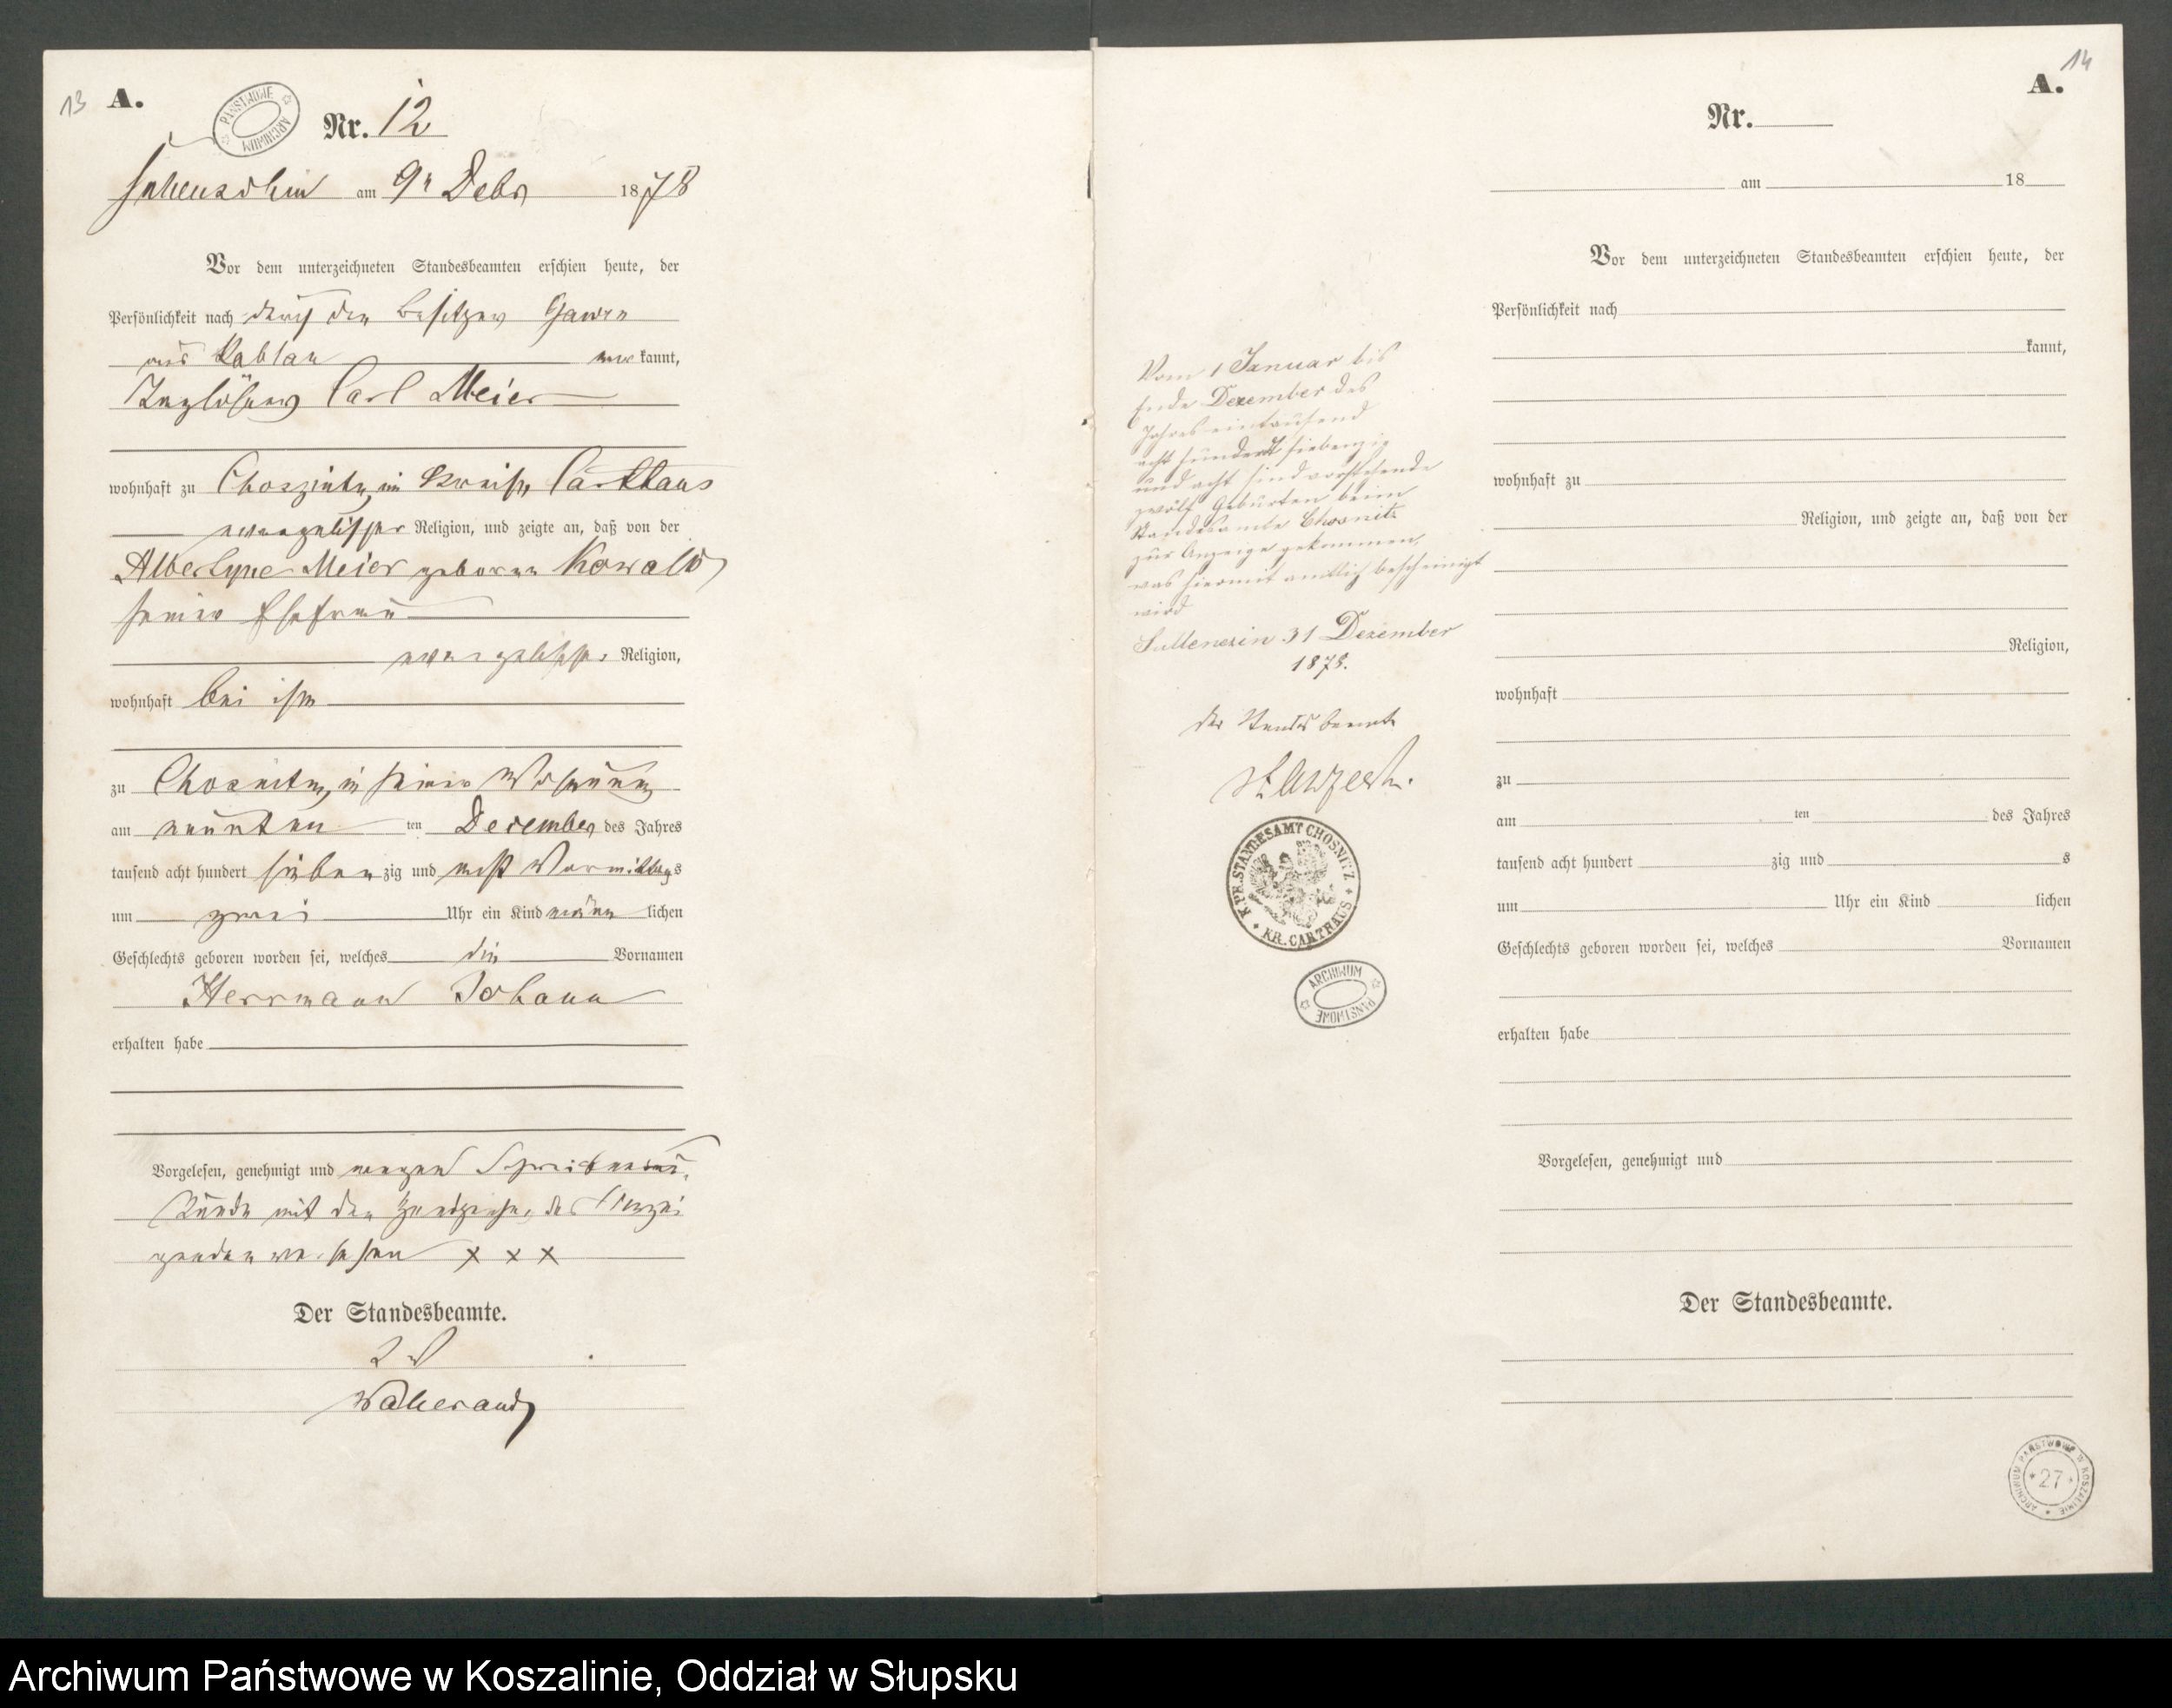 13 A.
PAŃSTWOWE ARCHIWUM
Nr. 12
am 9n Debr 1878
Vor dem unterzeichneten Standesbeamten erschien heute, der
Persönlichkeit nach durch den Besitzer
aus kannt,
Carl Meier
wohnhaft zu im Kreise Carthaus
evangelischer Religion, und zeigte an, daß von der
Albertyne Meier geborne Kowalk
seiner Ehefrau
evangelischer Religion,
wohnhaft bei ihm
zu Chosnitz, in seiner Wohnung
am neunten ten December des Jahres
tausend acht hundert sieben zig und acht Vormittags
um zwei Uhr ein Kind männ lichen
Geschlechts geboren worden sei, welches die Vornamen
Herrmann Johann
erhalten habe
Vorgelesen, genehmigt und wegen Schreibensun-
kunde mit den Handzeichen des Anzei
genden versehen x x x
Der Standesbeamte.
14
A.
Nr.
am 18
Vor dem unterzeichneten Standesbeamten erschien heute, der
Persönlichkeit nach
kannt,
wohnhaft zu
Religion, und zeigte an, daß von der
Religion,
wohnhaft
zu
am ten des Jahres
tausend acht hundert zig und s
um Uhr ein Kind lichen
Geschlechts geboren worden sei, welches Vornamen
erhalten habe
Vorgelesen, genehmigt und
Der Standesbeamte.
Vom 1 Januar bis
Ende Dezember des
Jahres eintausend
acht hundert siebenzig
und acht sind vorstehende
zwölf Geburten beim
Standesamte Chosnitz
zur Anzeige gekommen,
was hiermit amtlich bescheinigt
wird
Sullenczin 31 Dezember
1878.
Der Standesbeamte
K.PR.STANDESAMT CHOSNITZ
KR. CARTHAUS
ARCHIWUM PAŃSTWOWE
ARCHIWUM PAŃSTWOWE W KOSZALINIE
27
Archiwum Państwowe w Koszalinie, Oddział w Słupsku